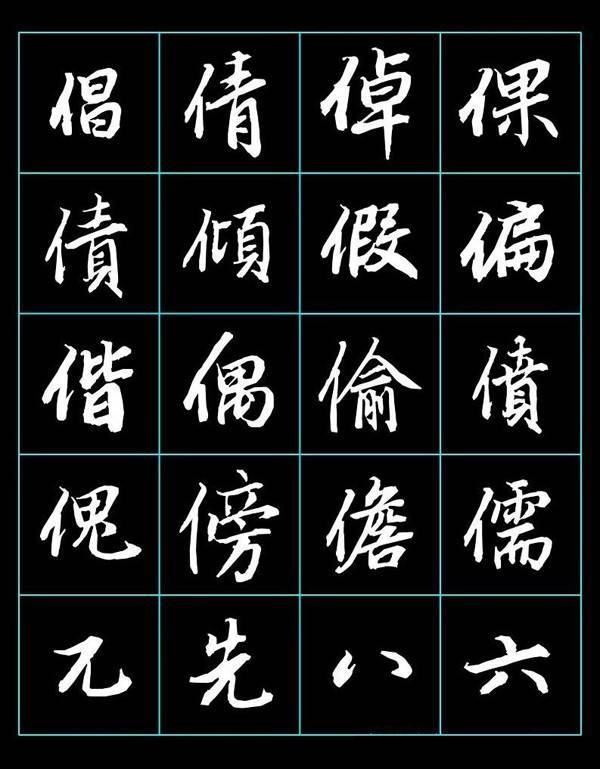 倡倩倬倮
債傾假偏
偕偶偷僨
傀傍儋儒
兀先八六